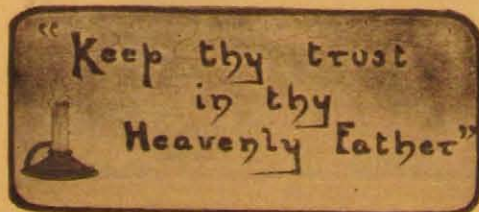 “Keep thy trust
in thy
Heavenly Father”